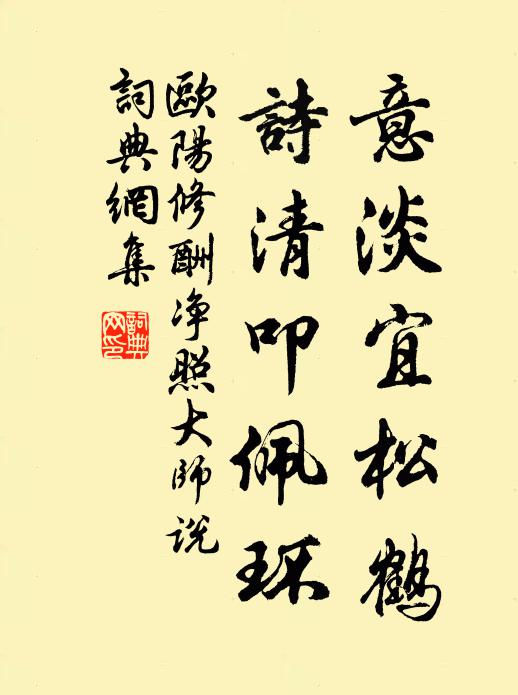 意淡宜松鶴
詩清叩佩环
歐陽修酬净照大师说
詞典網集
詞典网印